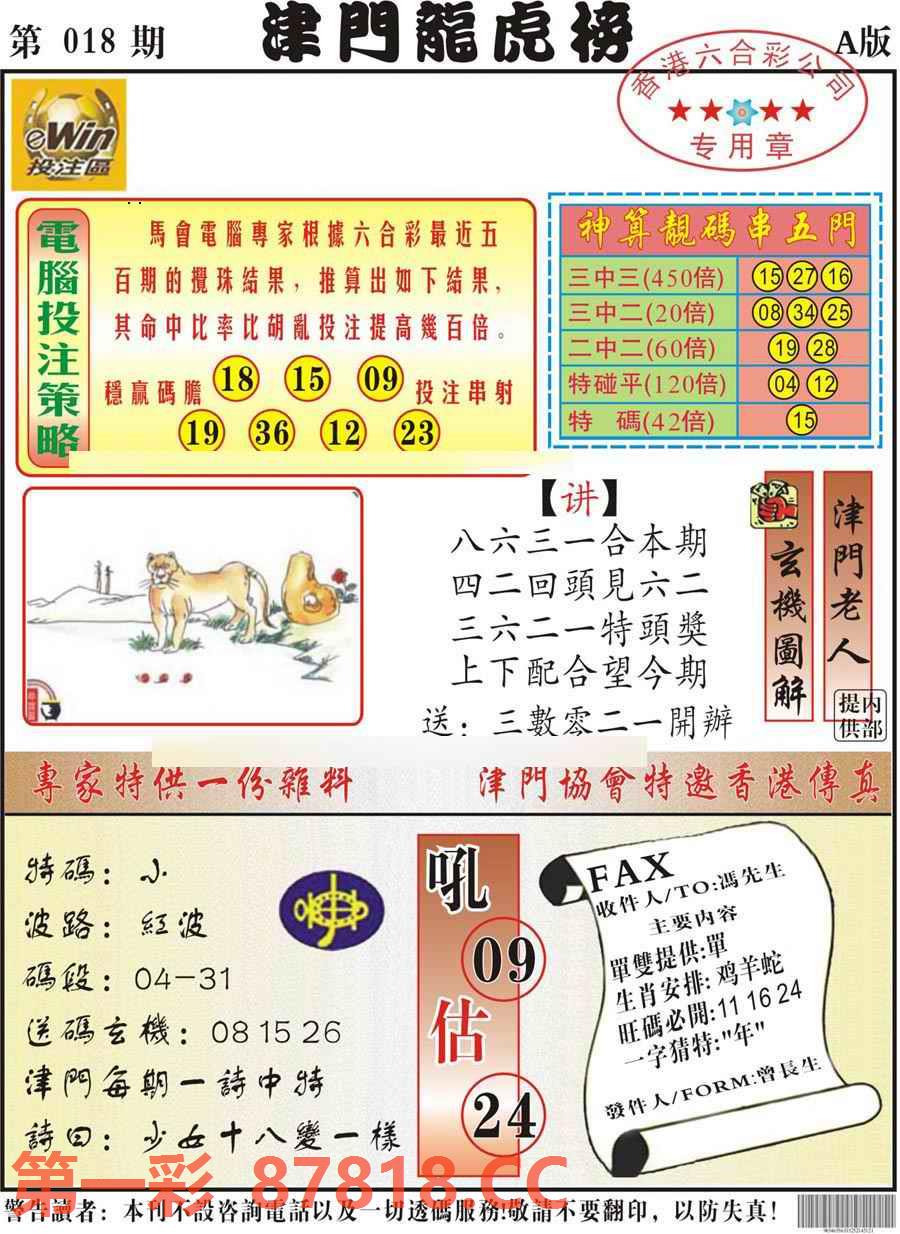 第 018 期
津門龍虎榜
A版
香港六合彩公司
专用章
eWin
投注區
電腦投注策略
馬會電腦專家根據六合彩最近五
百期的攪珠結果，推算出如下結果，
其命中比率比胡亂投注提高幾百倍。
穩贏碼膽 18 15 09 投注串射
19 36 12 23
神算靚碼串五門
三中三(450倍) 15 27 16
三中二(20倍) 08 34 25
二中二(60倍) 19 28
特碰平(120倍) 04 12
特 碼(42倍) 15
【讲】
八六三一合本期
四二回頭見六二
三六二一特頭獎
上下配合望今期
送：三數零二一開辦
玄機圖解
津門老人
内部提供
專家特供一份雜料
津門協會特邀香港傳真
特碼：小
波路：紅波
碼段：04-31
送碼玄機：08 15 26
津門每期一詩中特
詩曰：少女十八變一樣
吼
09
估
24
FAX
收件人/TO:馮先生
主要内容
單雙提供:單
生肖安排:鸡羊蛇
旺碼必開:11 16 24
一字猜特:"年"
發件人/FORM:曾長生
第一彩 87818.CC
警告讀者：本刊不設咨詢電話以及一切透碼服務!敬請不要翻印，以防失真!